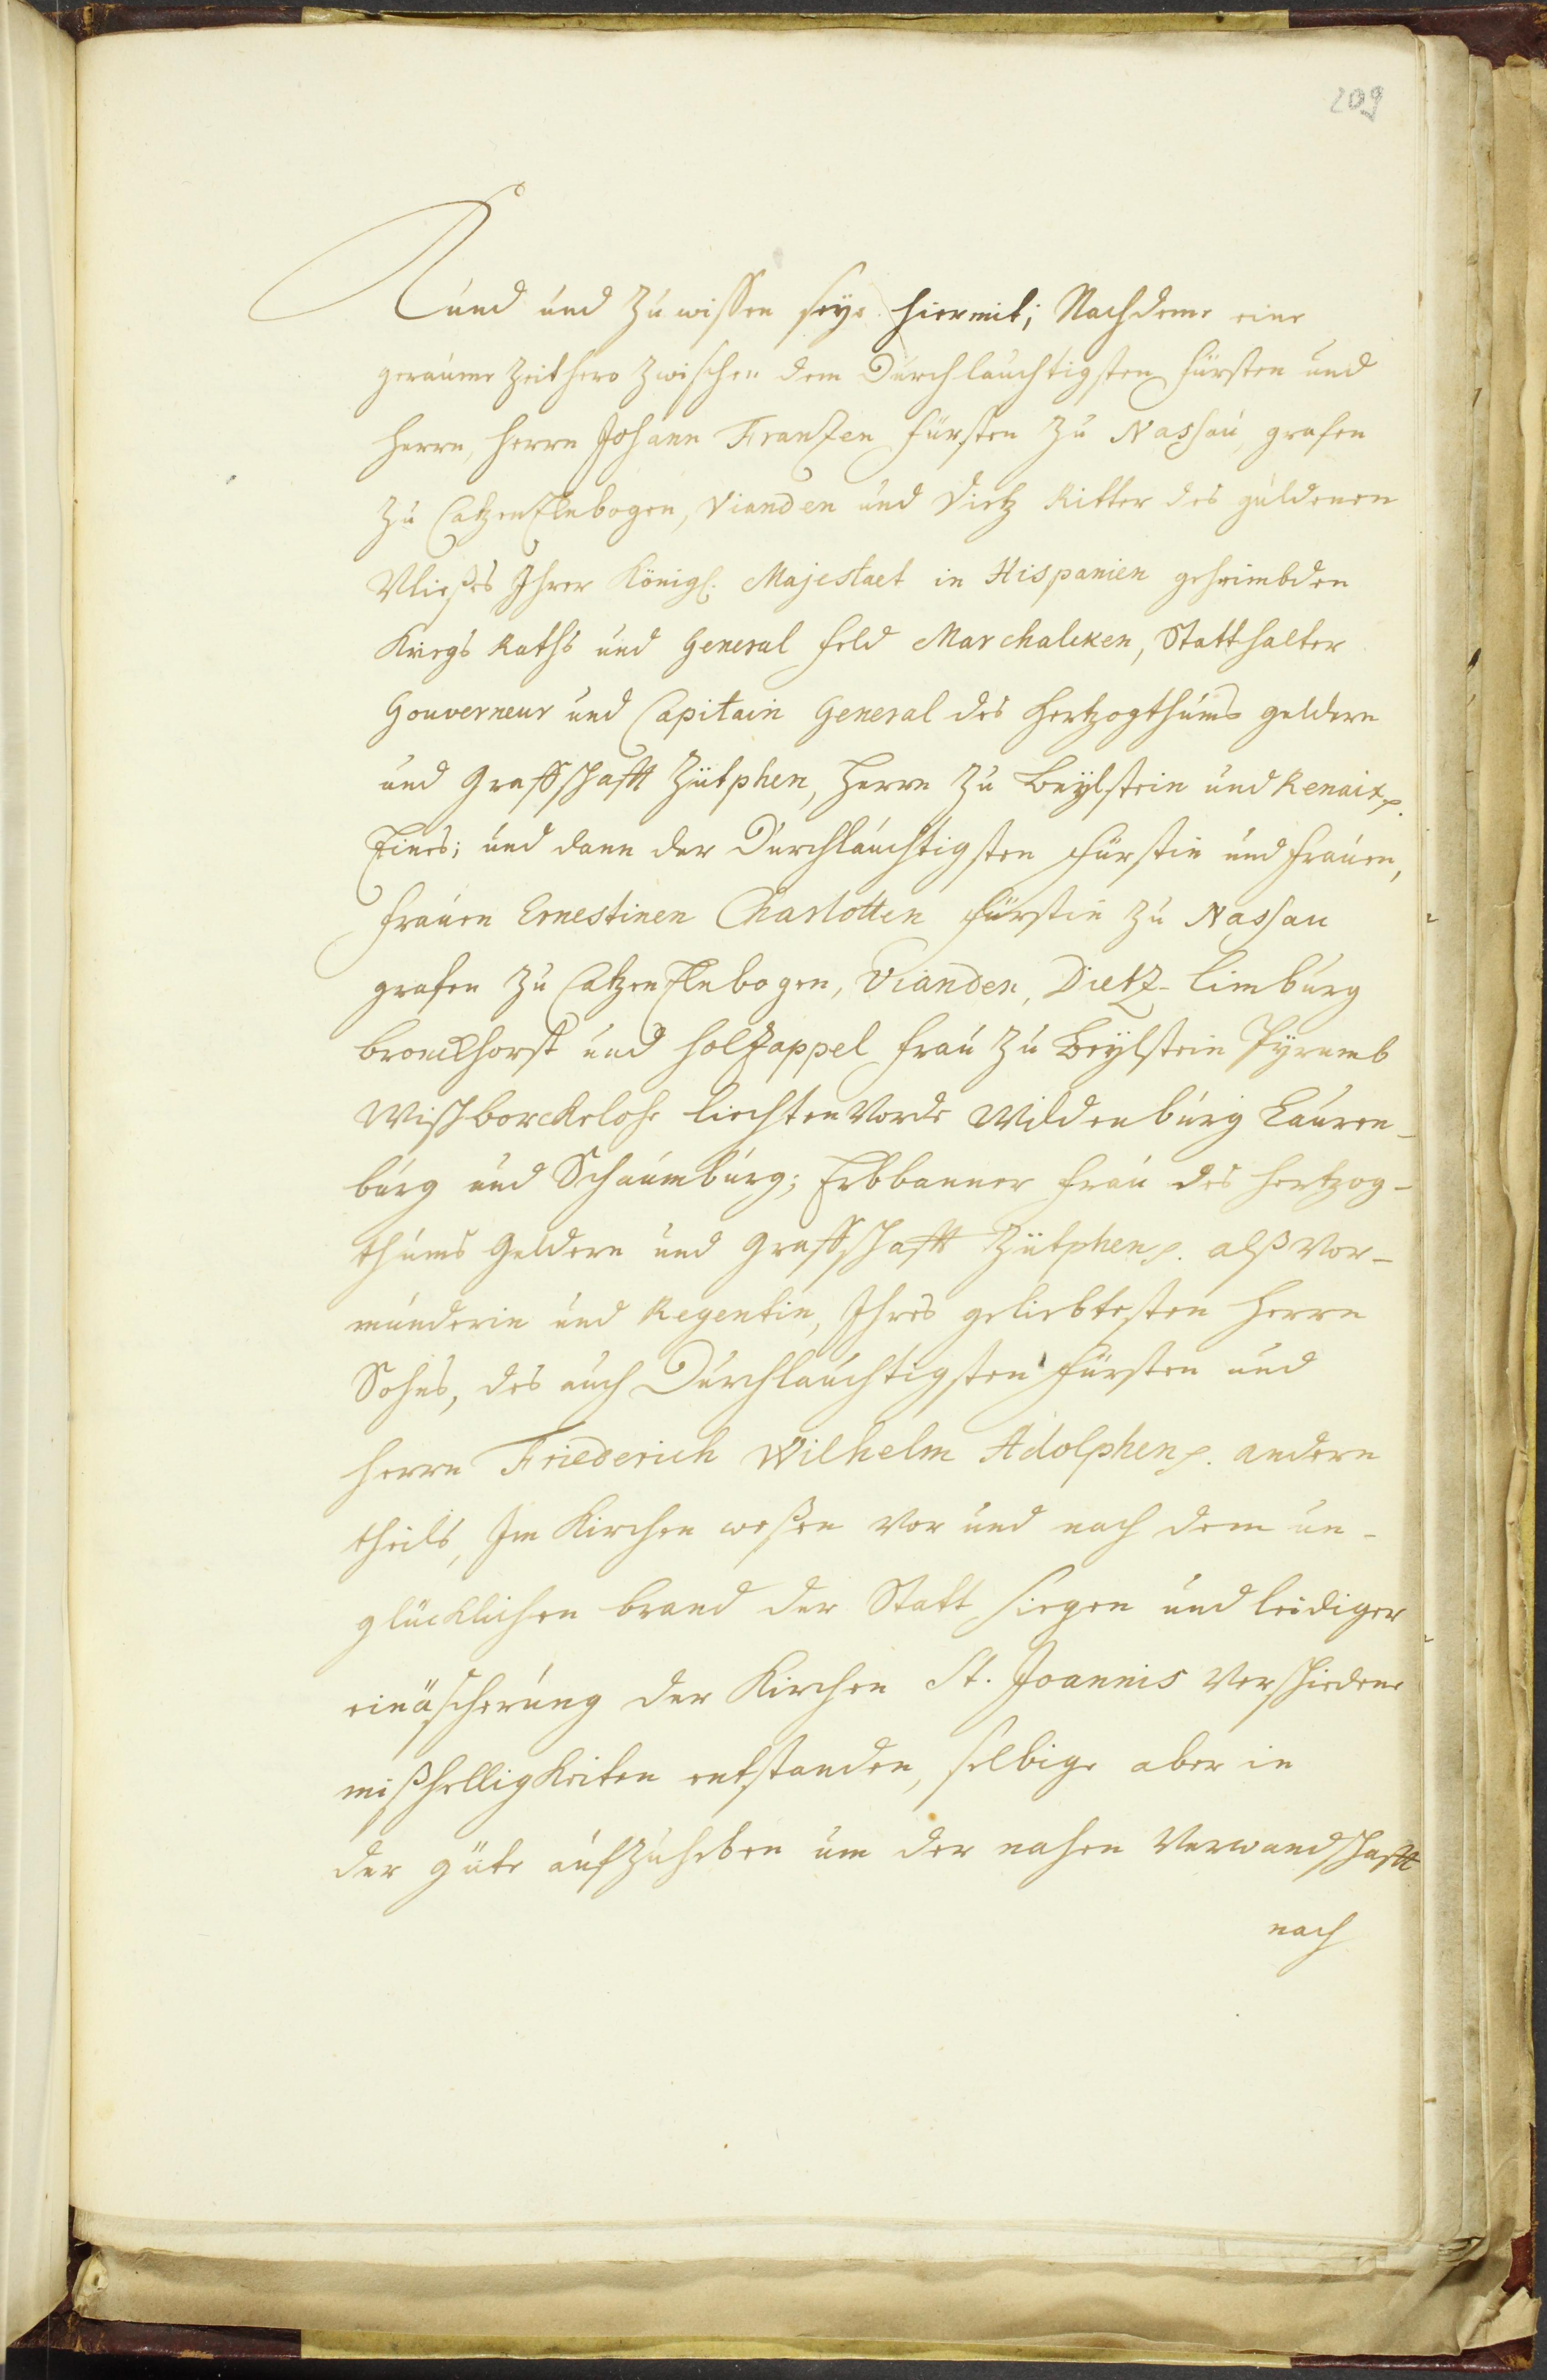 209
Kund und zu wissen seye hiermit; Nachdeme eine
geraume Zeithero zwischen dem Durchlauchtigsten fürsten und
herrn, herrn Johann Franzen fürsten zu Nassau, grafen
zu CatzenElnbogen, Vianden und Dietz Ritter des güldenen
Vließes Ihrer Königl. Majestaet in Hispanien geheimbden
Kriegs Raths und General feld Marchalcken, Statthalter
Gouverneur und Capitain General des hertzogthums geldern
und Graffschafft Zütphen, herrn zu Beylstein und Renaix p.
Eines; und dann der Durchlauchtigsten fürstin und frauen,
frauen Ernestinen Charlotten fürstin zu Nassau
grafen zu CatzenElnbogen, Vianden, Dietz- Limburg
bronckhorst und holzappel frau zu Beylstein Pyrmmb
Wisch borckelohe liechtenVorde Wildenburg Lauren-
burg und Schaumburg; Erbbanner frau des hertzog-
thums Geldern und Graffschafft Zütphen p. alß Vor-
münderin und Regentin, Ihres geliebtesten herrn
Sohns, des auch Durchlauchtigsten fürsten und
herrn Friederich Wilhelm Adolphen p. andern
theils, Im Kirchen weßen vor und nach dem un-
glücklichen brand der Statt Siegen und leidiger
einäscherung der Kirchen St. Joannis Verschiedene
mißhelligkeiten entstanden, selbige aber in
der güte aufzuheben um der nahen Verwandschafft
nach